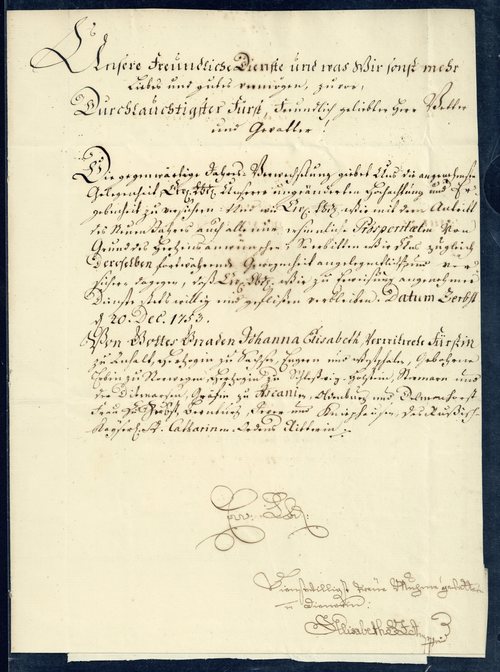 Unsere Freundliche Dienste und was Wir sonst mehr
Liebes und gutes vermögen, zuvor,
Durchlauchtigster Fürst, Freundlich geliebter Herr Vetter
und Gevatter!
Die gegenwärtige Jahres-Verwechselung giebet Uns die angenehme
Gelegenheit Ew. Lbd. Unserer ungeänderten Hochachtung und Er-
gebenheit zu versichern. Und wie Ew. Lbd. Wir mit dem Antritt
des Neuen Jahres auch alle nur ersinnliche Prosperitaeten von
Grund des Herzens anwünschen; So erbitten Wir Uns zugleich
Deroselben fortwährende Gewogenheit angelegentlichst und ver-
sichern dagegen, daß Ew. Lbd. Wir zu Erweisung angenehmer
Dienste stets willig und geflissen verbleiben. Datum Zerbst
d. 20. Dec. 1753.
Von Gottes Gnaden Johanna Elisabeth, Verwittwete Fürstin
zu Anhalt, Herzogin zu Sachsen, Engern und Westphalen, Gebohrene
Erbin zu Norwegen, Herzogin zu Schleswig, Holstein, Stormarn und
der Ditmarsen, Gräfin zu Ascanien, Oldenburg und Delmenhorst,
Frau zu Zerbst, Bernburg, Jever und Kniphausen, des Rußisch-
Kayserl. Catharinen Ordens Ritterin.
Ew. Lbd.
Dienstwilligst treue Muhme gevatterin
u Dienerin:
Elisabeth